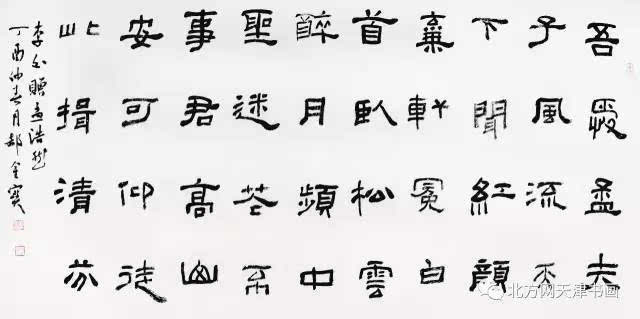 吾愛孟夫
子風流天
下聞紅顏
棄軒冕白
首臥松雲
醉月頻中
聖迷花不
事君高山
安可仰徒
此揖清芬
李白贈孟浩然
丁酉仲春月郝金寶
北方网天津书画